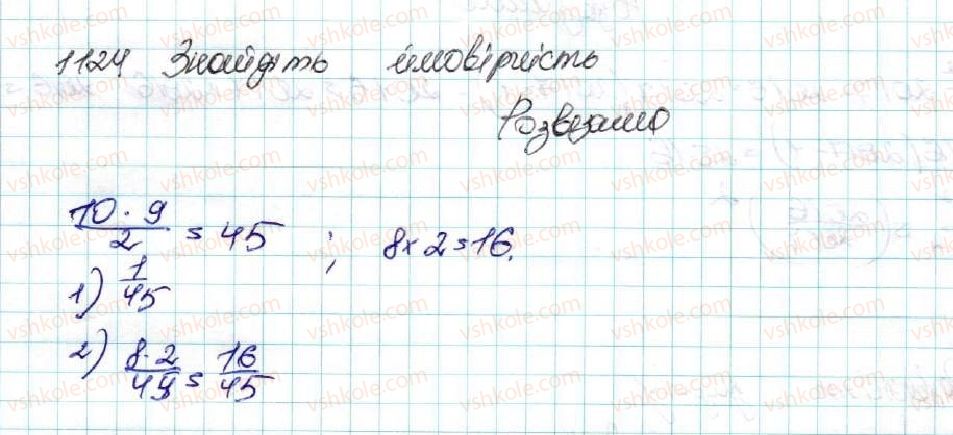 1124 Знайдіть ймовірність
Розвязання
10 · 9 / 2 = 45 ; 8 × 2 = 16.
1) 1/45
2) 8·2/45 = 16/45